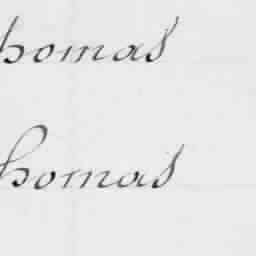 homas
homas